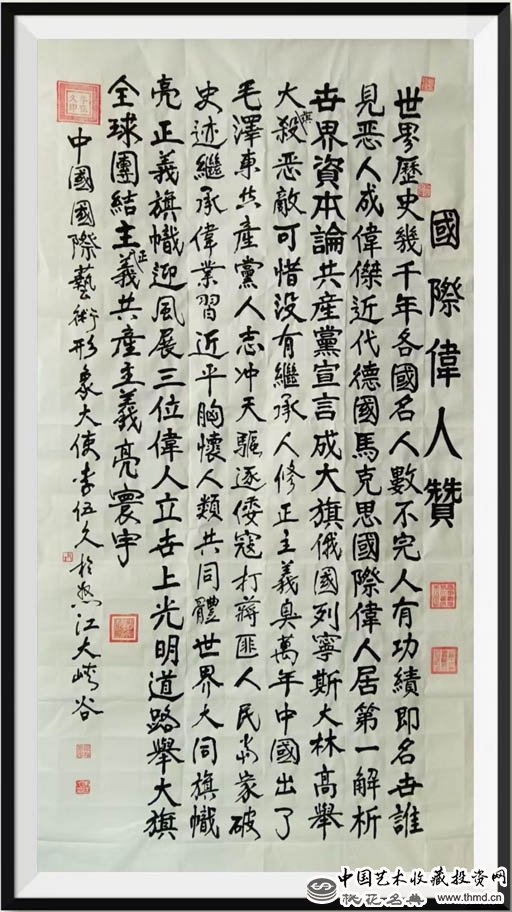 國際偉人贊
世界歷史幾千年各國名人數不完人有功績即名世誰
見恶人成偉傑近代德國馬克思國際偉人居第一解析
世界資本論共産黨宣言成大旗俄國列寧斯大林高舉
大旗殺恶敵可惜没有繼承人修正主義臭萬年中國出了
毛澤東共産黨人志冲天驅逐倭寇打蔣匪人民當家破
史迹繼承偉業習近平胸懷人類共同體世界大同旗幟
亮正義旗幟迎風展三位偉人立世上光明道路舉大旗
全球團結主正義共産主義亮寰宇
中國國際藝術形象大使李伍久於怒江大峽谷
中国艺术收藏投资网
桃花名典 www.thmd.cn